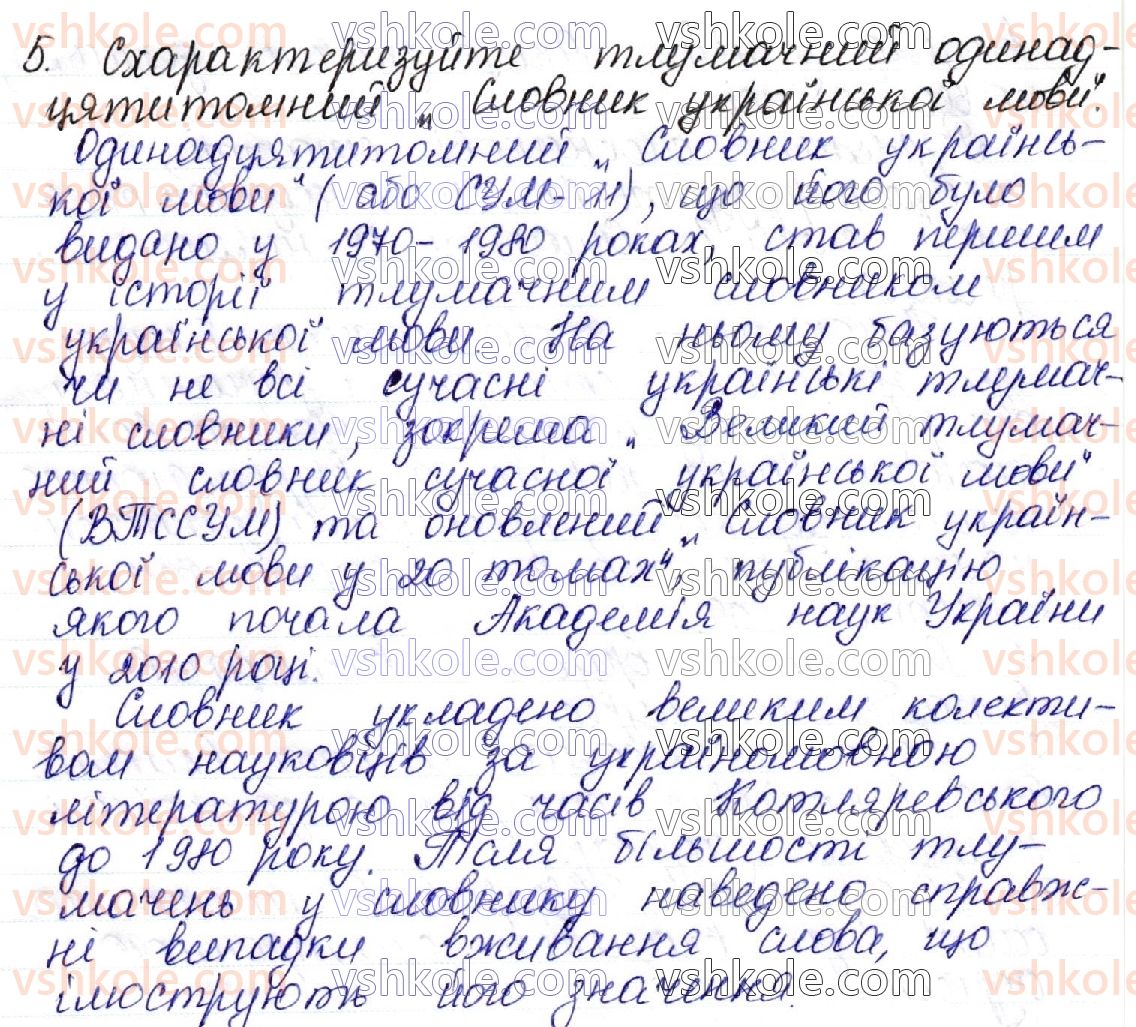 5. Схарактеризуйте тлумачний одинад-
цятитомний „Словник української мови".
Одинадцятитомний „Словник українсь-
кої мови" (або СУМ-11), що його було
видано у 1970-1980 роках, став першим
у історії тлумачним словником
української мови. На ньому базуються
чи не всі сучасні українські тлумач-
ні словники, зокрема „Великий тлумач-
ний словник сучасної української мови"
(ВТССУМ) та оновлений „Словник україн-
ської мови у 20 томах", публікацію
якого почала Академія наук України
у 2010 році.
Словник укладено великим колекти-
вом науковців за україномовною
літературою від часів Котляревського
до 1980 року. Після більшості тлу-
мачень у словнику наведено справж-
ні випадки вживання слова, що
ілюструють його значення.